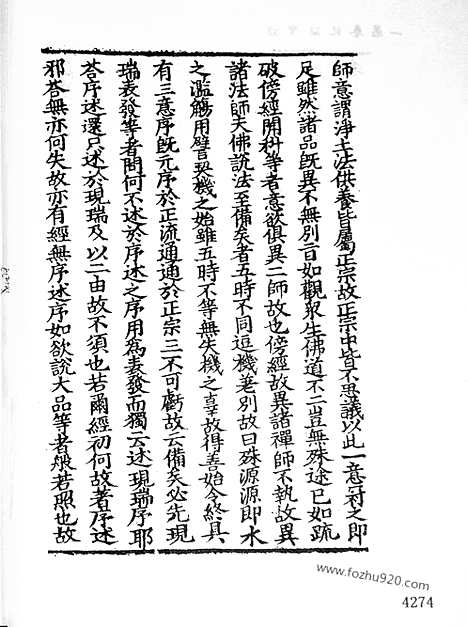 師意謂淨土法供養皆屬正宗故正宗中皆不思議以此一意冠之即
足雖然諸品既異不無別旨如觀眾生佛道不二豈無殊途已如疏
破傍經開科等者意欲俱異二師故也傍經故異諸禪師不執故異
諸法師夫佛說法至備矣者五時不同逗機差別故曰殊源源即水
之濫觴用譬契機之始雖五時不等無失機之辜故得善始令終具
有三意序既元序於正流通通於正宗三不可虧故云備矣必先現
瑞表發等者問何不述於序述之序用為表發而獨云述現瑞序耶
答序述還只述於現瑞及以二由故不須也若爾經初何故著序述
邪答無亦何失故亦有經無序述序如欲說大品等者般若照也故
www.fozhu920.com
4274